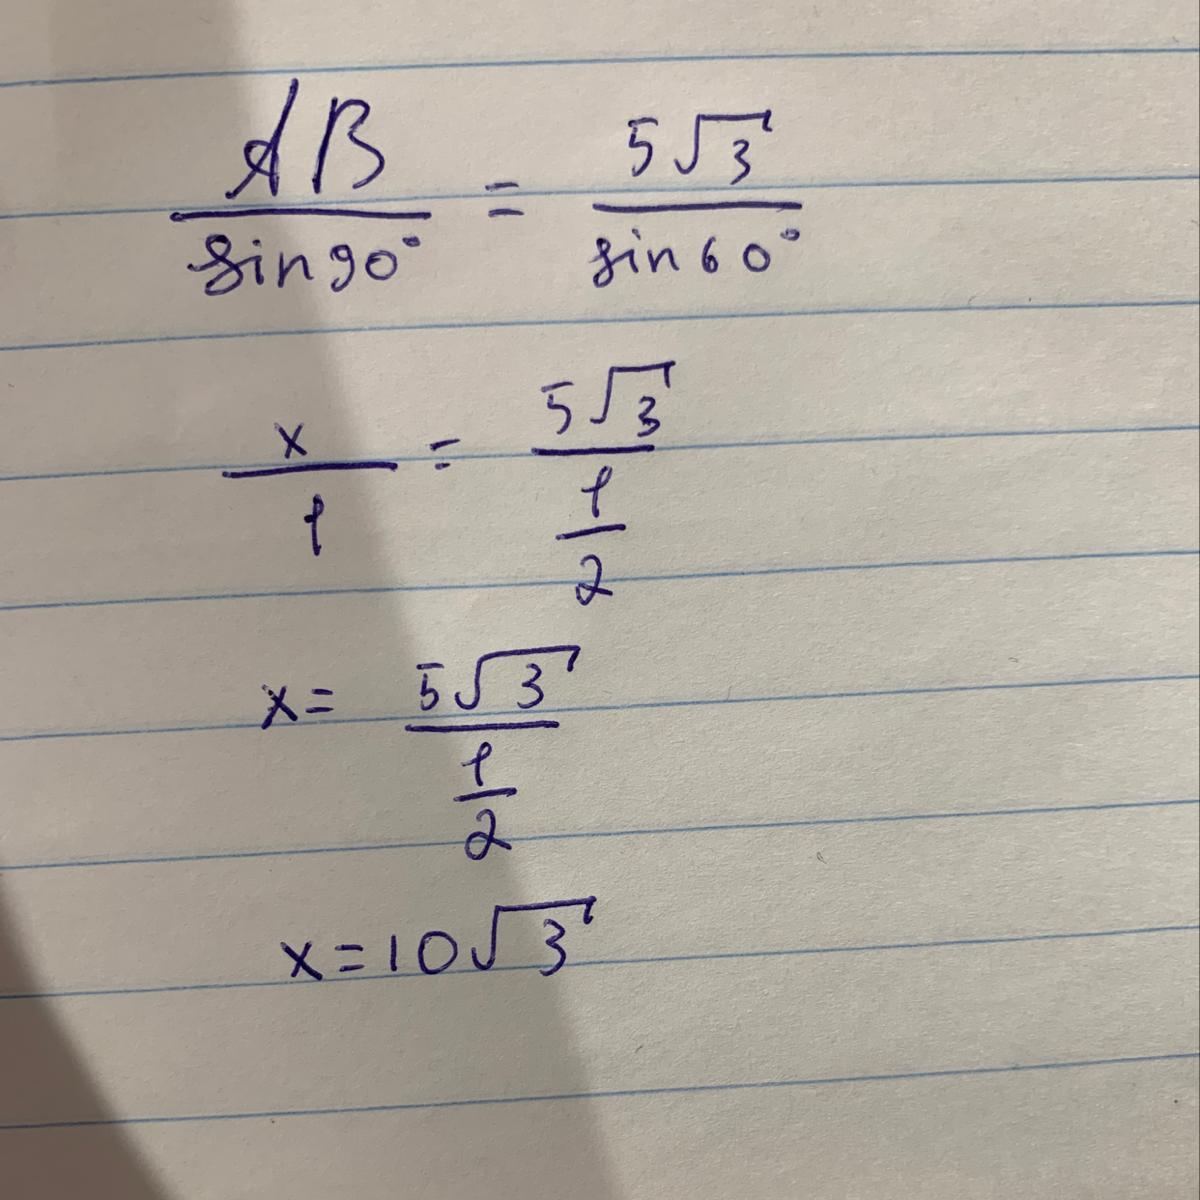 AB/sin90° = 5√3/sin60°
x/1 = 5√3/(1/2)
x= 5√3/(1/2)
x=10√3